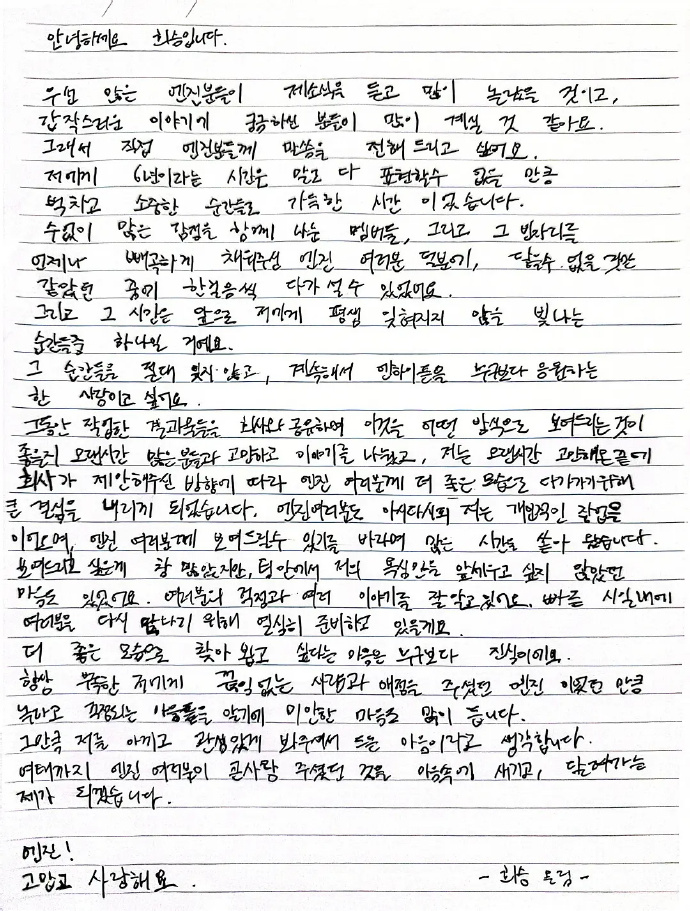 안녕하세요 희승입니다.
우선 많은 엔진분들이 제소식을 듣고 많이 놀랐을 것이고,
갑작스러운 이야기에 궁금하신 분들이 많이 계실 것 같아요.
그래서 직접 엔진분들께 말씀을 전해드리고 싶어요.
저에게 6년이라는 시간은 말로 다 표현할수 없을 만큼
벅차고 소중한 순간들로 가득한 시간 이었습니다.
수없이 많은 감정을 함께 나눈 멤버들, 그리고 그 빈자리를
언제나 빼곡하게 채워주신 엔진 여러분 덕분에, 닿을수 없을 것만
같았던 꿈에 한걸음씩 다가 설 수 있었어요.
그리고 그 시간은 앞으로 저에게 평생 잊혀지지 않을 빛나는
순간들중 하나일 거에요.
그 순간들을 절대 잊지 않고, 계속해서 엔하이픈을 누구보다 응원하는
한 사람이고 싶어요.
그동안 작업한 결과물들을 회사와 공유하며 이것을 어떤 방식으로 보여드리는 것이
좋을지 오랜시간 많은 분들과 고민하고 이야기를 나눴고, 저는 오랜시간 고민해온 끝에
회사가 제안해주신 방향에 따라 엔진 여러분께 더 좋은 모습으로 다가가기위해
큰 결심을 내리게 되었습니다. 엔진여러분도 아시다시피 저는 개인적인 작업을
이었으며, 엔진 여러분께 보여드릴수 있기를 바라며 많은 시간을 쏟아 왔습니다.
보여드리고 싶은게 참 많았지만, 팀 안에서 저의 욕심만을 앞세우고 싶지 않았던
마음도 있었어요. 여러분의 걱정과 여러 이야기를 잘 알고 있어요. 빠른 시일내에
여러분을 다시 만나기 위해 열심히 준비하고 있을게요.
더 좋은 모습으로 찾아 뵙고 싶다는 마음은 누구보다 진심이에요.
항상 부족한 저에게 끊임없는 사랑과 애정을 주셨던 엔진 이었던 만큼
놀라고 걱정되는 마음들을 알기에 미안한 마음도 많이 듭니다.
그만큼 저를 아끼고 관심있게 봐주셔서 드는 마음이라고 생각합니다.
여태까지 엔진 여러분이 큰사랑 주셨던 것을 마음속에 새기고, 달려가는
제가 되겠습니다.
엔진!
고맙고 사랑해요.
- 희승 드림 -